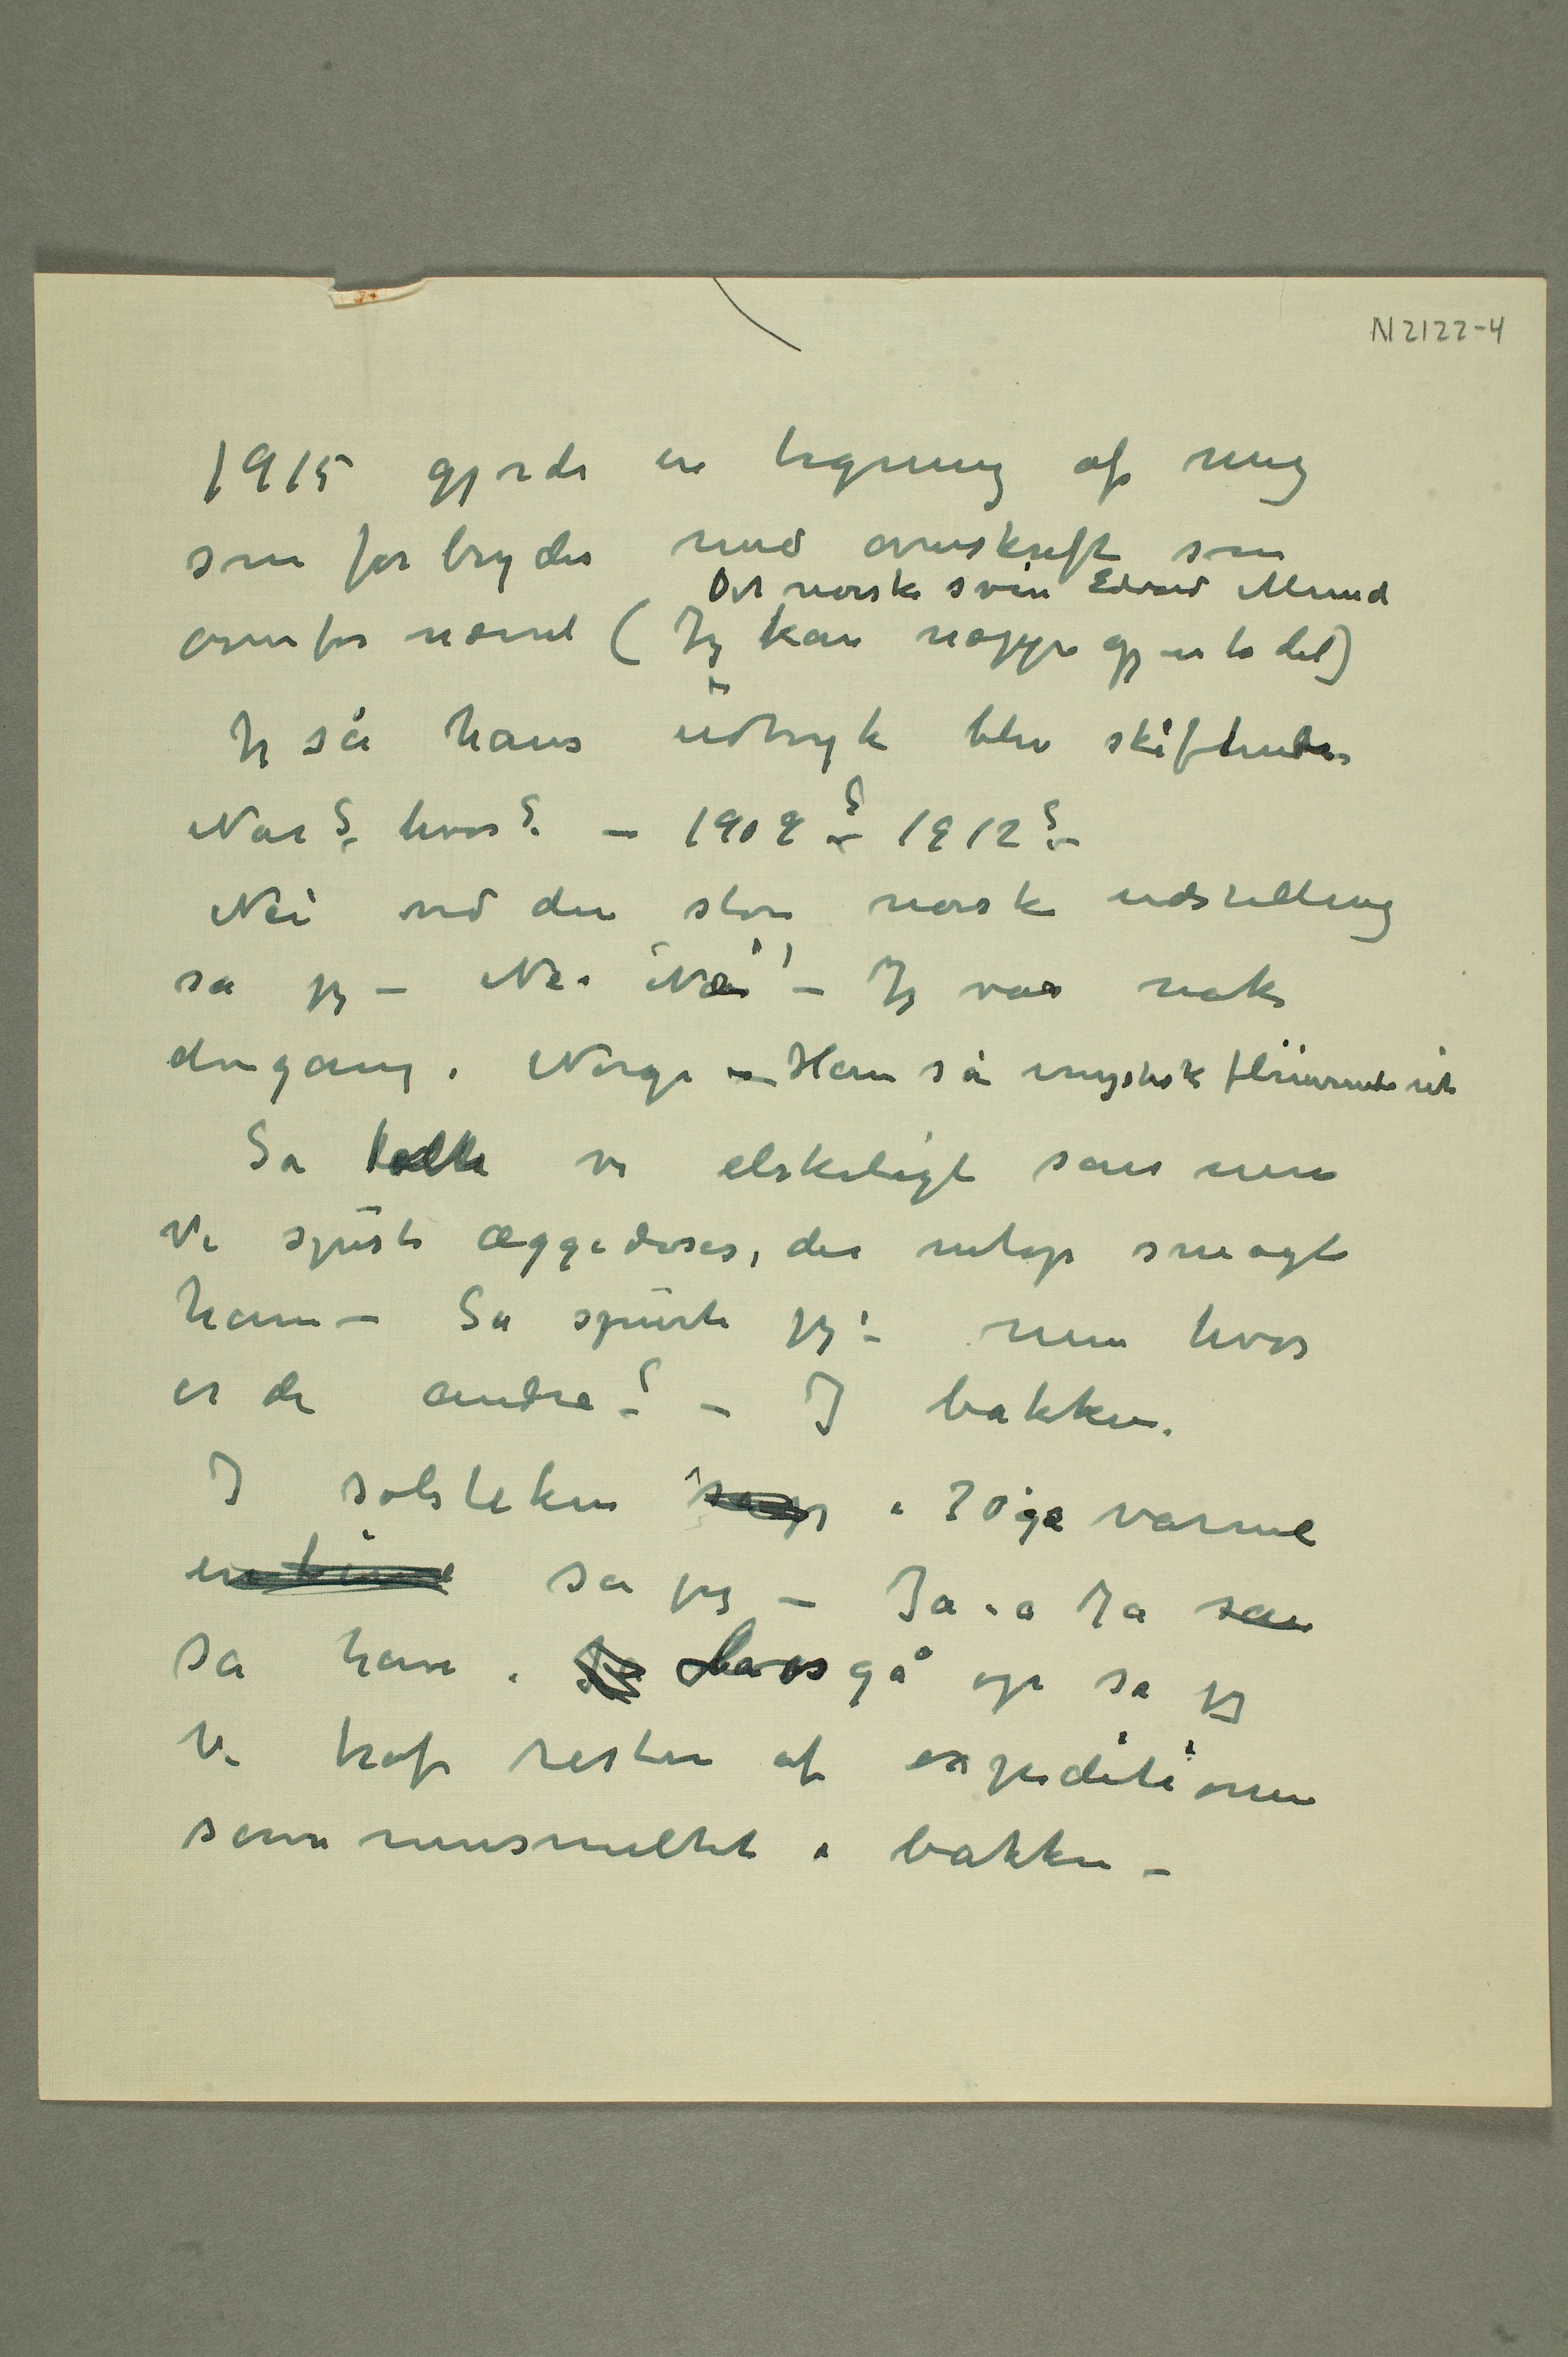 N 2122-4
1915 gjorde en tegning af mig
som forbryder med overskrift som
Det norske svin Edvard Munch
ovenfor nævnt (Jeg kan neppe gjenta det)
Jeg så hans udtryk blev skiftende
Når? hvor? – 1909? – 1912? –
Nei ved den store norske udstilling
sa jeg – Nei Nei! – Jeg var nok
dengang i Norge – Han så mystisk flirende ut
Så talte vi elskeligt sammen
Vi spiste æggedosis, der netop smagte
ham – Så spurte jeg: men hvor
er de andre? – I bakken.
I solsteken i 30 gr varme
sa jeg – Ja, a Ja
sa han. La os gå op sa jeg
Vi traf resten af expeditionen
sammensmeltet i bakken –